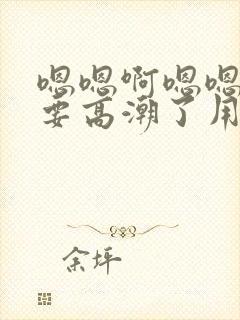 嗯嗯啊嗯嗯
要高潮了用
余坪